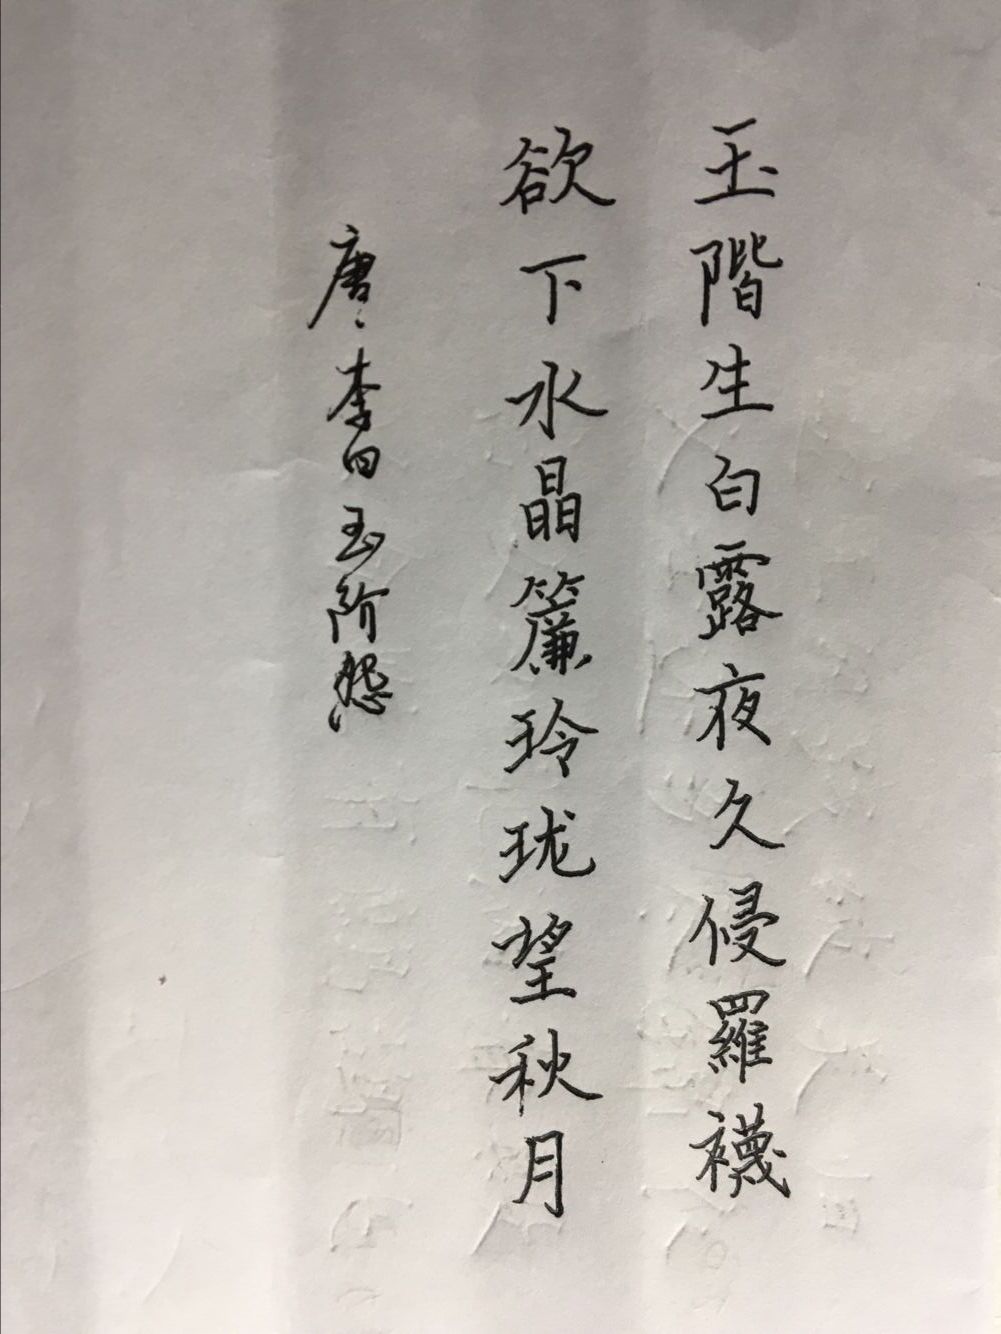 玉階生白露夜久侵羅襪
欲下水晶簾玲珑望秋月
唐李白玉阶怨